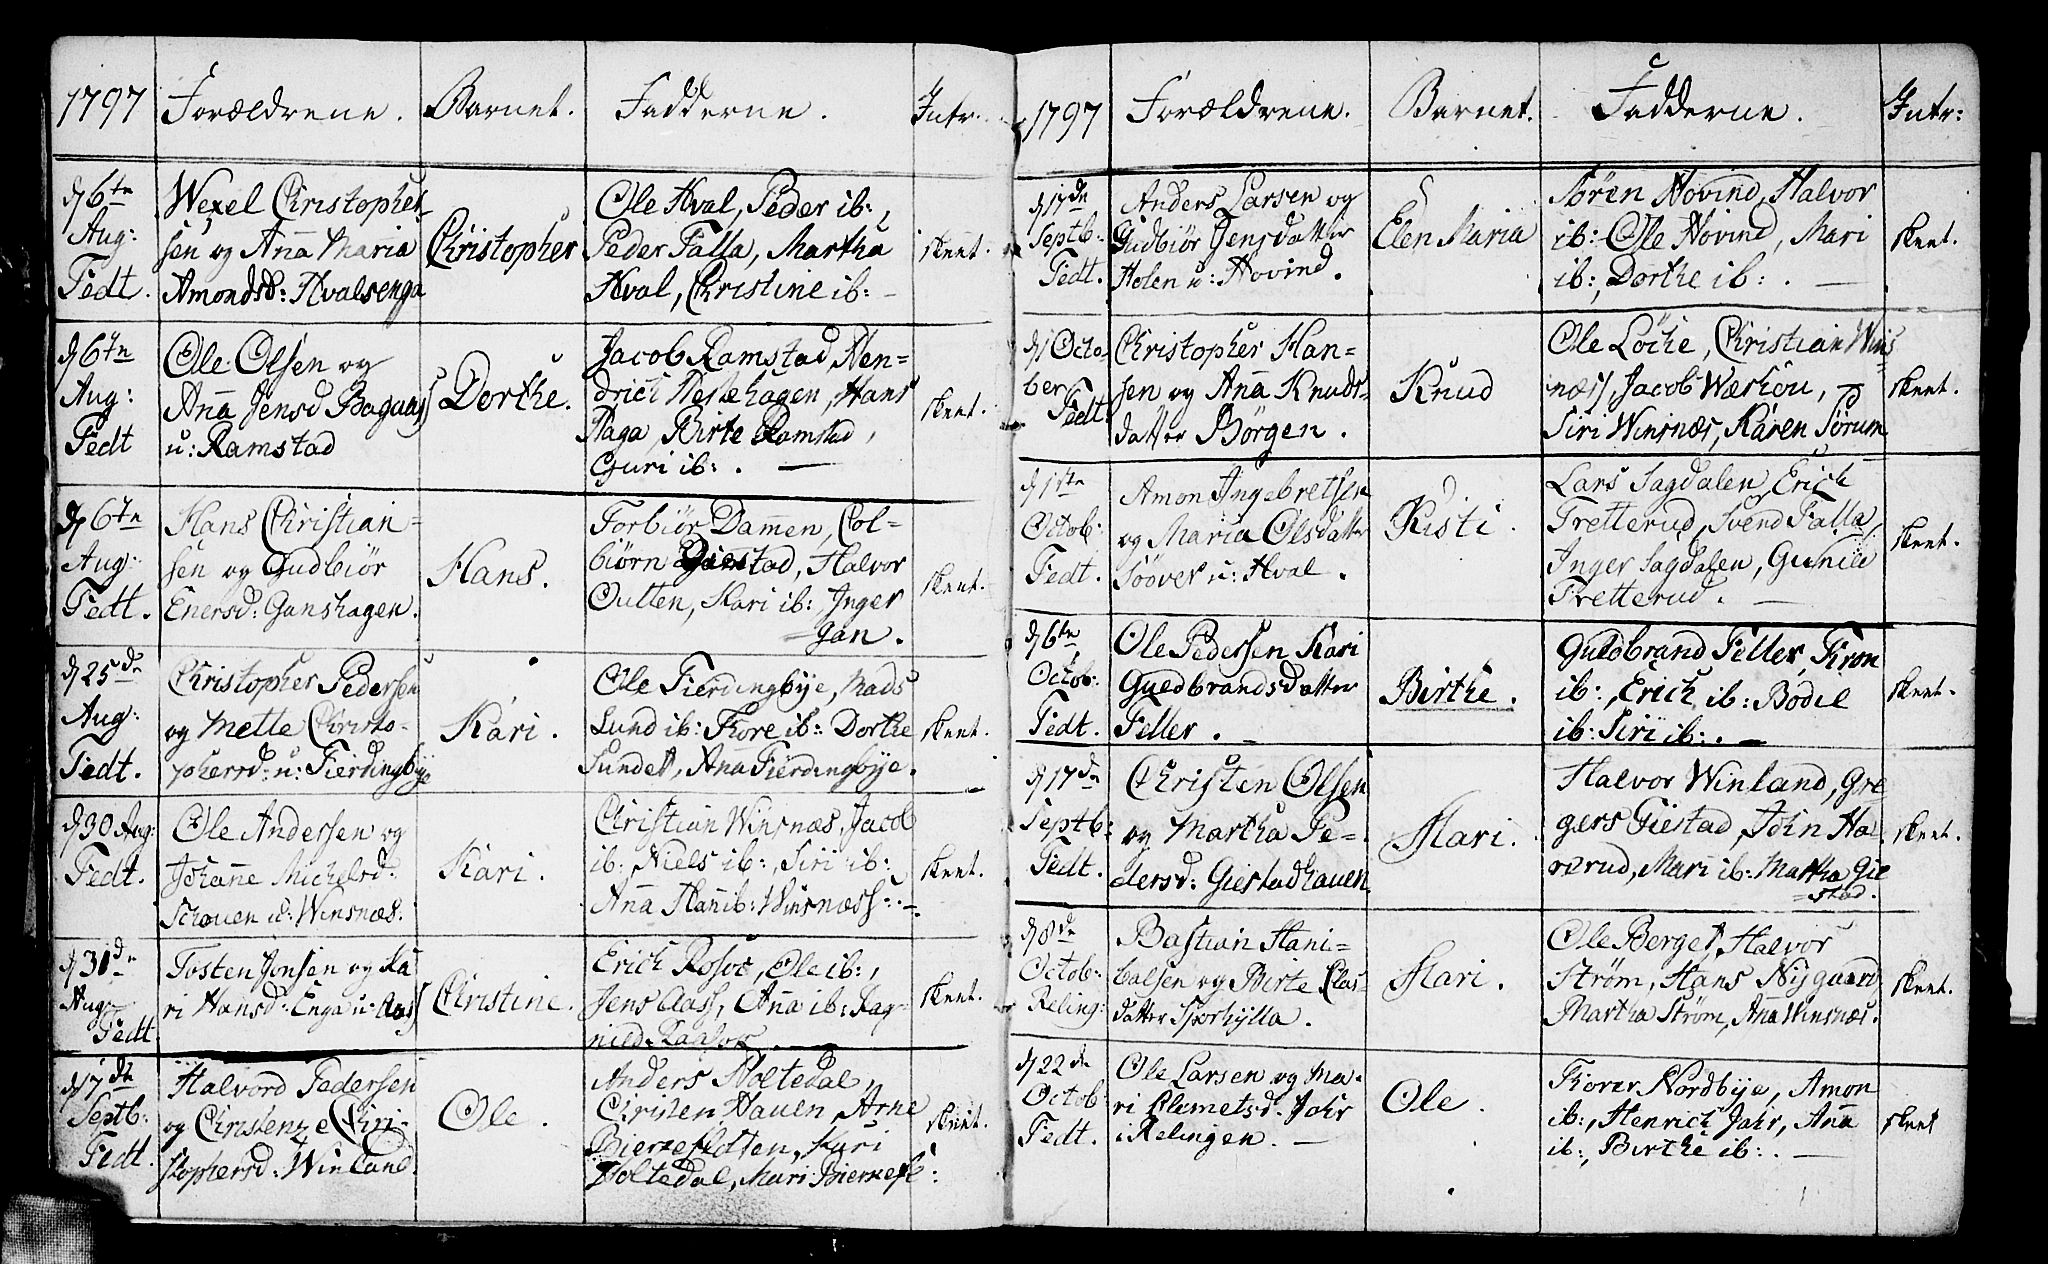 1797 Forældrene. Barnet. Fadderne. Intr:
d 6te Aug: Fedt.
Wexel Christopher-
sen og Aña Maria
Amondsd: Hvalsenga
Christopher
Ole Hval, Peder ib:,
Peder Falla, Martha
Hval, Christine ib: –
skeet.
d 6te Aug: Fedt
Ole Olsen og
Aña Jensd Bagaas
u: Ramstad
Dorthe.
Jacob Ramstad, Hen-
drich Nestehagen, Hans
Haga, Birte Ramstad,
Guri ib: . —
skeet.
d 6te Aug: Fedt.
Hans Christian-
sen og Gudbiør
Enersd: Ganshagen.
Hans.
Torbiør Damen, Col-
biørn Giestad, Halvor
Outten, Kari ib:, Inger
Gan.
skeet.
d 25de Aug: Fedt.
Christopher Pedersen
og Mette Christo-
phersd: u: Fierdingbÿe
Kari.
Ole Fierdingbÿe, Mads
Lund ib: Tore ib: Dorthe
Sundet, Aña Fierdingbÿe.
skeet.
d 30 Aug: Fedt.
Ole Andersen og
Johañe Michelsd:
Schouen u: Winsnæs.
Kari.
Christian Winsnæs, Jacob
ib: Niels ib:, Siri ib:
Aña Hanib: Winsnæss. –
skeet.
d 31de Aug: Fedt
Tosten Jonsen og Ka
ri Hansd: Enga u: Aas
Christine.
Erich Rosoe, Ole ib:,
Jens Aass, Aña ib: Rag-
nild
skeet.
d 17de Septb: Fedt.
Halvord Pedersen
og Christenze Chri-
stophersd: Winland.
Ole.
Anders Holtedal,
Christen Hauen, Arne
Bierkesletten, Kari
Holtedal, Mari Bierkesl:
skeet.
1797 Forældrene. Barnet. Fadderne. Intr:
d 17de Septb: Fedt.
Anders Larsen og
Gudbiør Jensdatter
Holen u: Hovind.
Elen Maria
Søren Hovind, Halvor
ib: Ole Hovind, Mari
ib:, Dorthe ib: . —
skeet.
d 1 Octo-
ber Fedt
Christopher Han-
sen og Aña Knuds-
datter Börgen.
Knud
Ole Löche, Christian Wins
næs, Jacob Wæshou,
Siri Winsnæs, Karen Sörum
skeet.
d 1ste Octob: Fedt.
Amon Ingebretsen
og Maria Olsdatter
Söøver u: Hval.
Kisti.
Lars Sagdalen, Erich
Tretterud, Svend Falla,
Inger Sagdalen, Gunild
Tretterud. —
skeet.
d 6te Octob: Fedt.
Ole Pedersen Kari
Guldbrandsdatter
Feller. –
Birthe.
Guldbrand Feller, Tron
ib:, Erich ib: Bodil
ib: Siri ib: . –
skeet.
d 17de Septb: Fedt.
Christen Olsen
og Martha Pe-
dersd: Giestadhauen.
Mari.
Halvor Winland, Gre
gers Giestad, John Ha
rerud, Mari ib: Martha Gie
stad.
skeet.
d 8de Octob: Reling:
Bastian Hani-
balsen og Birte Clas-
datter Sporhylla.
Mari.
Ole Berget, Halvor
Strøm, Hans Nijgaard
Martha Strøm, Aña Winsnæs.
skeet.
d 22de Octob: Fedt.
Ole Larsen og Ma-
ri Clemetsd. Jahr
i Relingen. —
Ole.
Torer Nordbÿe, Amon
ib:, Henrich Jahr, Aña
ib:, Birthe ib: . —
skeet